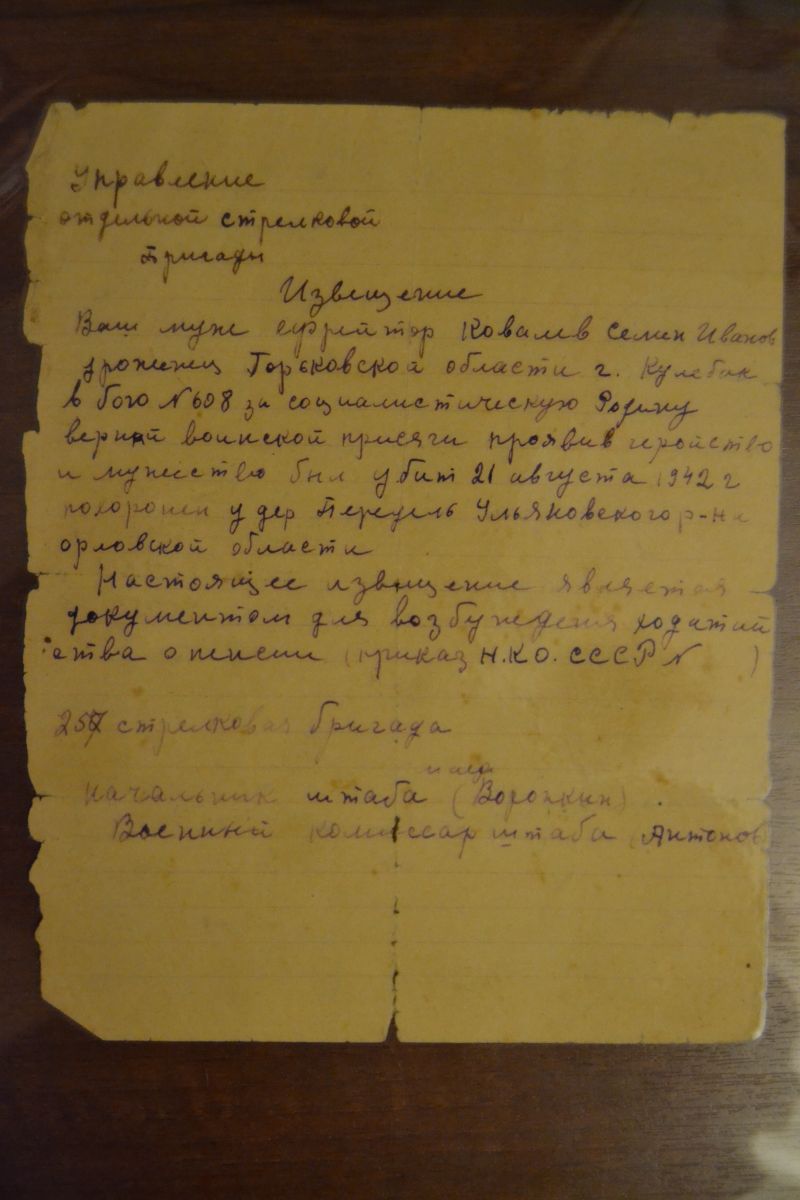 Управление
отдельной стрелковой
бригады
Извещение
Ваш муж ефрейтор Ковалев Семен Иванов
уроженец Горьковской области г. Кулебак
в бою № 608 за социалистическую Родину
верный воинской присяги проявив геройство
и мужество был убит 21 августа 1942 г
похоронен у дер Передель Ульяновского р-на
орловской области
Настоящее извещение является
документом для возбуждения ходатай
ства о пенсии (приказ Н.К.О. СССР №   )
257 стрелковая бригада
Начальник штаба (Воронкин)
Военный комиссар штаба (Антонов